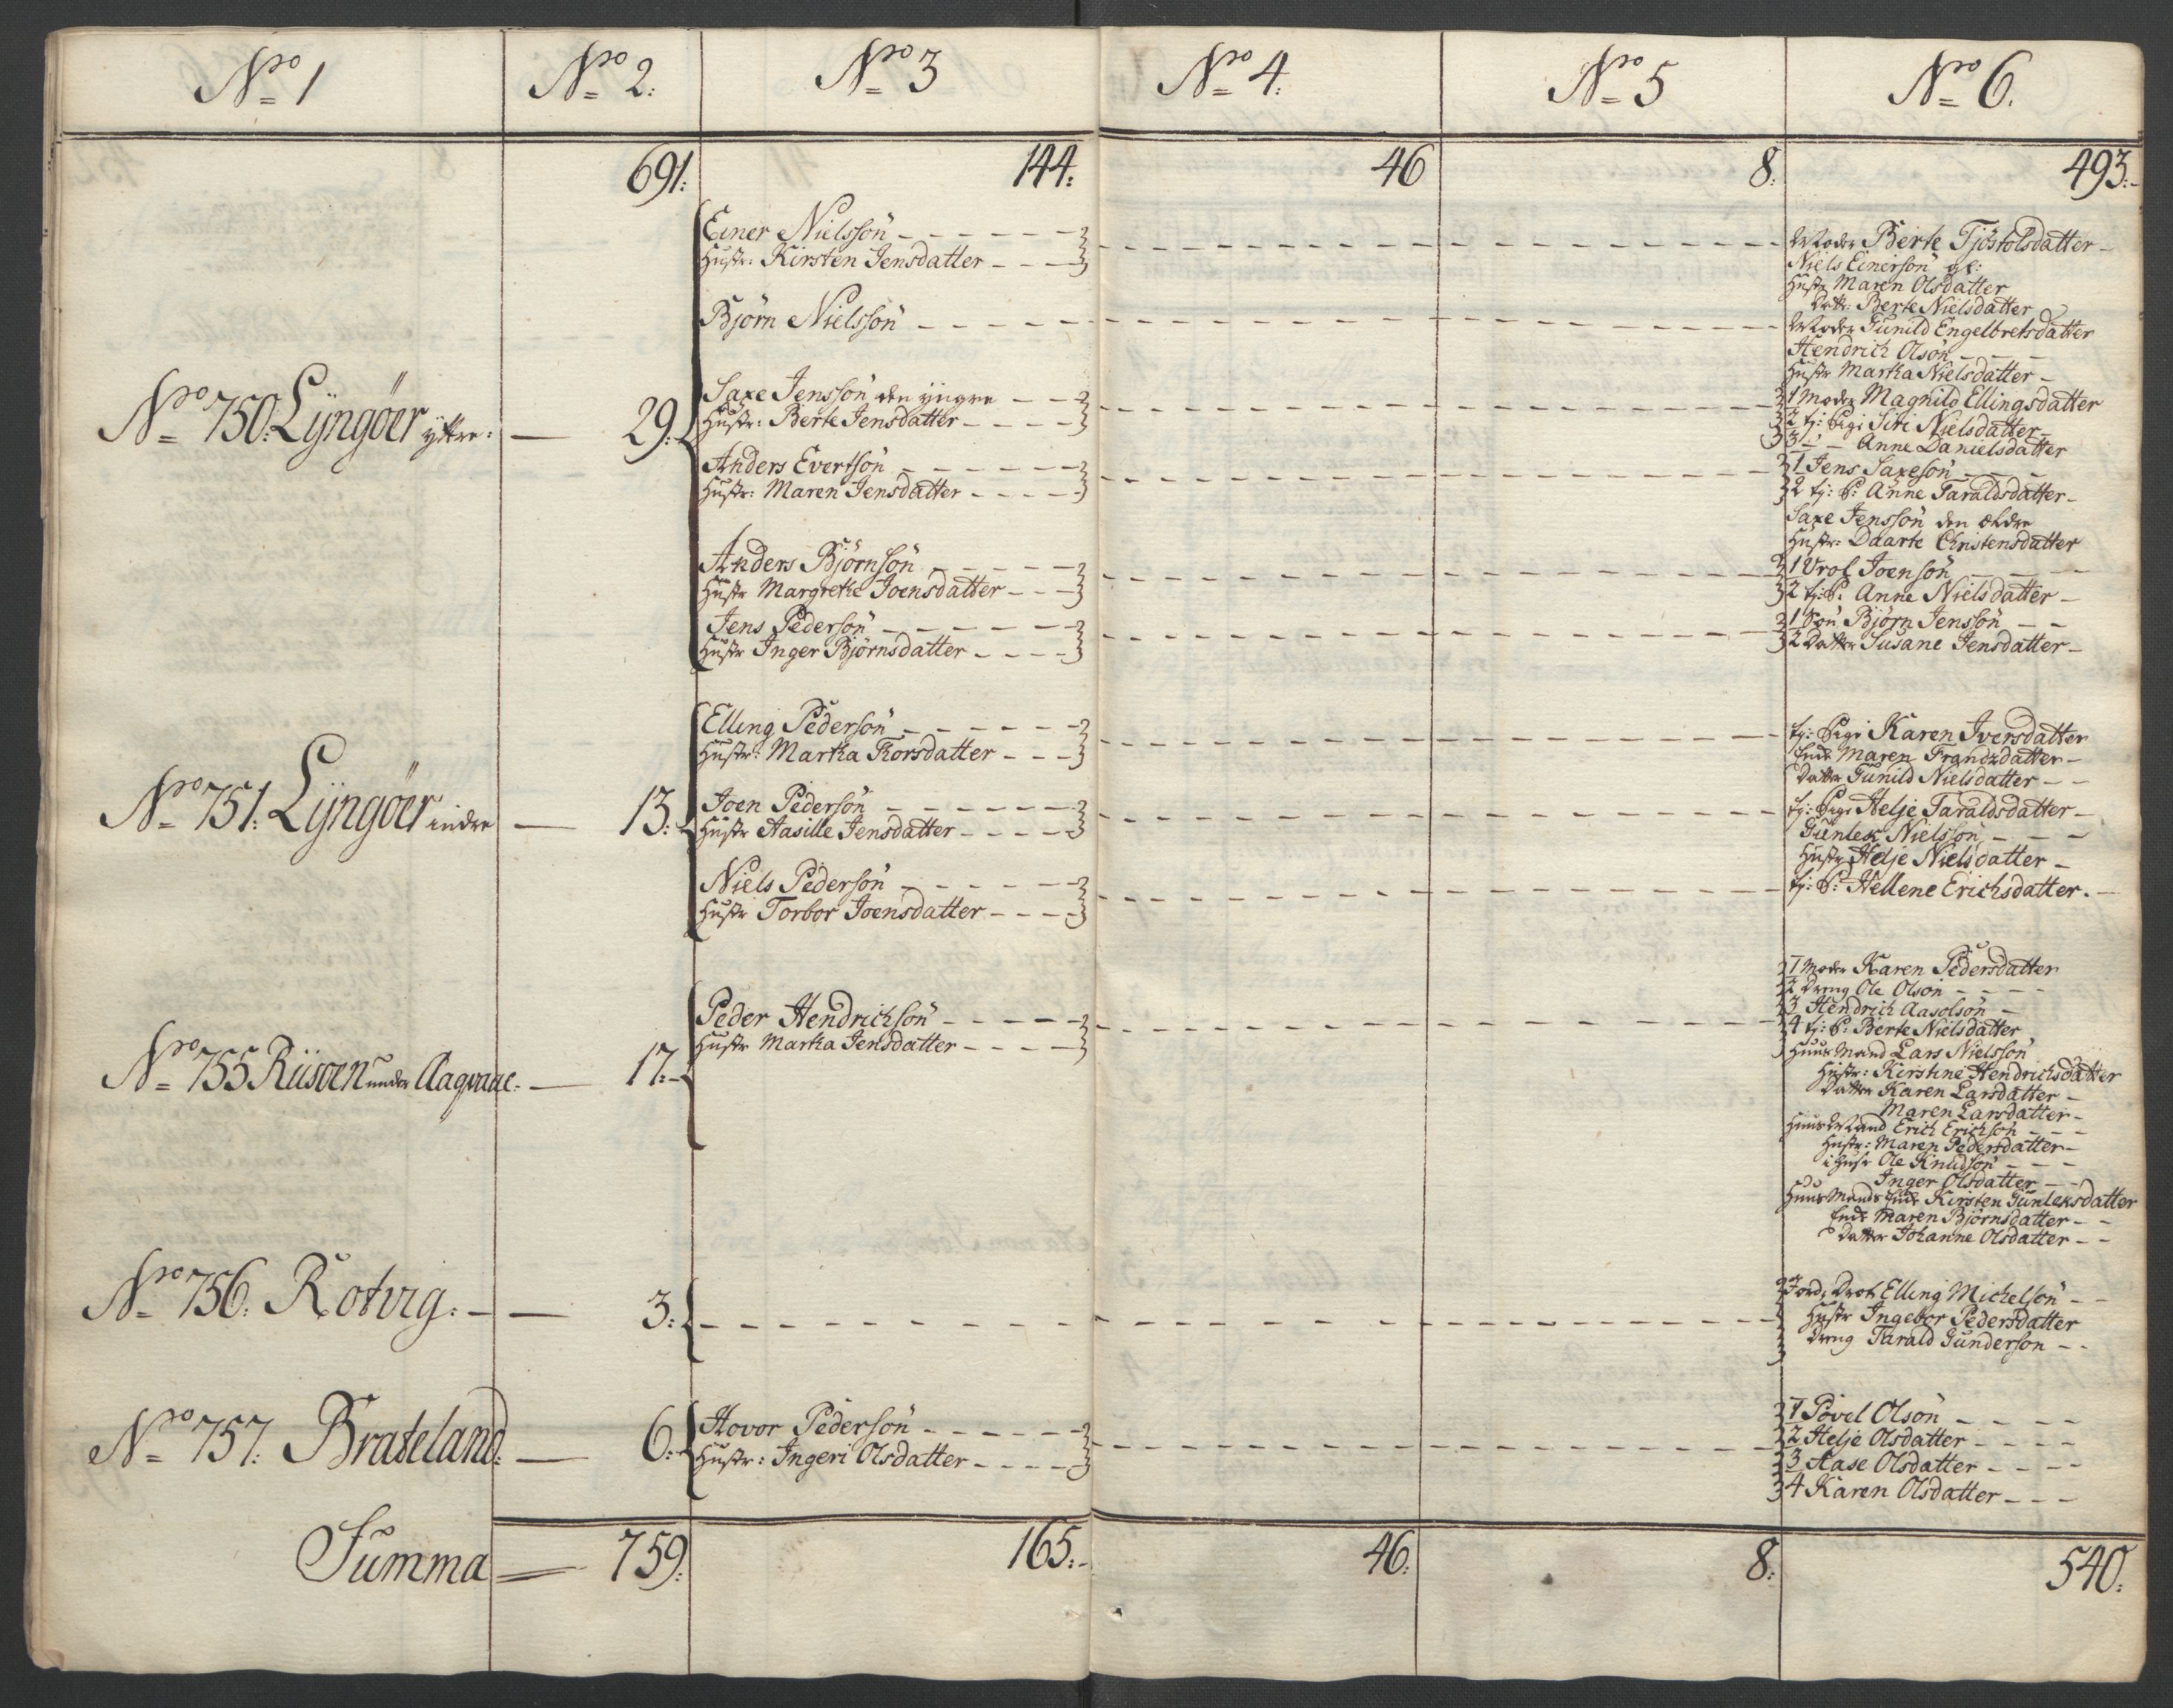 Nro 1
Nro 2:
Nro 3
Nro 4:
Nro 5
Nro 6.
691:
144:
46
8:
493:-
Nro 750: Lÿngöer yttre:
29:
Einer Nielssön
Hustr: Kirsten Jensdatter
Björn Nielssön
Saxe Jenssön den yngre
Hustr: Berte Jensdatter
Anders Evertsön
Hustr: Maren Jensdatter
Anders Björnsön
Hustr Margrethe Joensdatter
Jens Pedersön
Hustr Inger Björnsdatter
Moder Berte Tjöstolsdatter
Niels Einersön gl:
Hustr Maren Olsdatter
Datr: Berte Nielsdatter
Moder Gunild Engelbretsdatter
Hendrich Olsön
Hustr Martha Nielsdatter
1 Moder Magnild Ellingsdatter
2 tj: Pige Siri Nielsdatter
3 - - Anne Danielsdatter
1 Jens Saxesön
2 tj: P: Anne Taraldsdatter
Saxe Jenssön den ældre
Hustr: Daarte Christensdatter
1 Vrol Joensön
2 tj: P: Anne Nielsdatter
1 Sön Björn Jenssön
2 Datter Susane Jensdatter
Nro 751: Lÿngöer indre
13:
Elling Pedersön
Hustr: Martha Thorsdatter
Joen Pedersön
Hustr Aasille Jensdatter
Niels Pedersön
Hustr Torbor Joensdatter
tj: Pige Karen Iversdatter
Enke Maren Frandzdatter
Datter Gunild Nielsdatter
tj: Pige Helje Taraldsdatter
Gunlek Nielssön
Hustr Helje Nielsdatter
tj: P: Hellene Erichsdatter.
Nro 755 Riisöen under Aaqvaac:
17:
Peder Hendrichsön
Hustr Martha Jensdatter
1 Moder Karen Pedersdatter
2 Dreng Ole Olsön
3 Hendrich Aasolsön
4 tj: P: Berte Nielsdatter
Huus Mand Lars Nielssön
Hustr: Kirstine Hendrichsdatter
Datter Karen Larsdatter
Maren Larsdatter
Huus Mand Erich Erichsön
Hustr: Maren Pedersdatter
i Huse Ole Knudsön
Inger Olsdatter
Huus Mands Enke Kirsten Gunleksdatter
Enke Maren Björnsdatter
Datter Johanne Olsdatter
Nro 756: Rotvig:
3:
Jord: Drot Elling Michelsön
Hustr Ingebor Pedersdatter
Dreng Tarald Gundersön
Nro 757: Brateland:
6:
Hovor Pedersön
Hustr: Ingeri Olsdatter
1 Povel Olsön
2 Helje Olsdatter
3 Aase Olsdatter
4 Karen Olsdatter
Summa
759:
165:-
46:
8:
540: